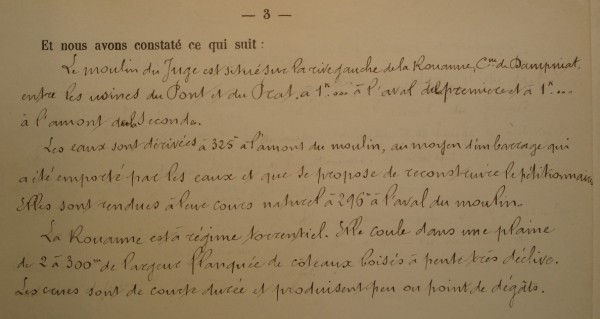 — 3 —
Et nous avons constaté ce qui suit :
Le moulin du Juge est situé sur la rive gauche de la Rouanne, Cne de Dampniat
entre les usines du Pont et du Prat. à 1K... à l'aval de la première et à 1K...
à l'amont de la Seconde.
Les eaux sont dérivées à 325m à l'amont du moulin, au moyen d'un barrage qui
a été emporté par les eaux et que se propose de reconstruire le pétitionnaire
Elles sont rendues à leur cours naturel à 296m à l'aval du moulin.
La Rouanne est à régime torrentiel. Elle coule dans une plaine
de 2 à 300m de largeur flanquée de coteaux boisés à pente très déclive.
Les crues sont de courte durée et produisent peu ou point de dégâts.